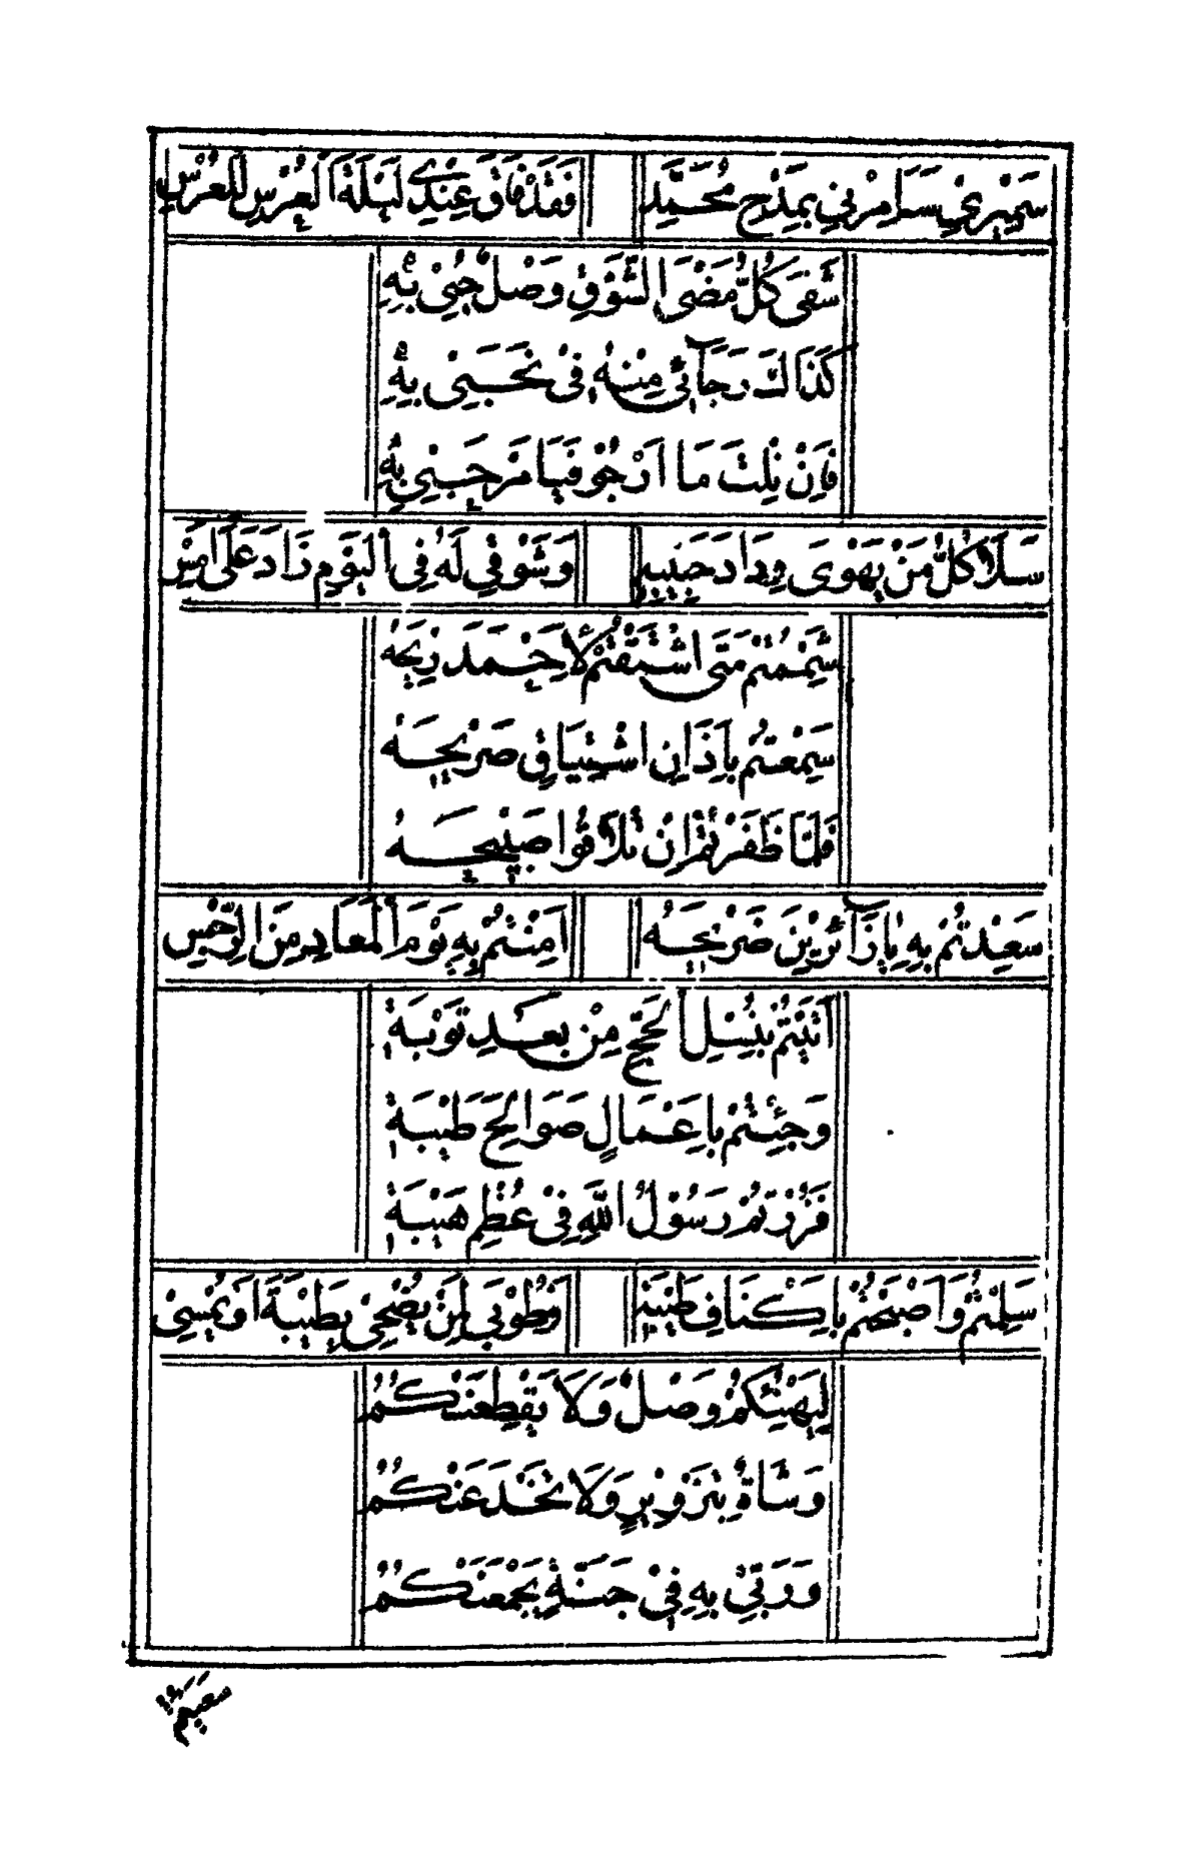 سَمِيْرِيْ سَامِرْنِيْ بِمَدْحِ مُحَمَّدٍ فَقَدْ فَاقَ عِنْدِيْ لَيْلَةَ الْعُرْسِ لِلْعُرْسِ
شَفَى كُلَّ مَضْنَى الشَّوْقِ وَصْلُ حَبِيْبِهِ
كَذَاكَ رَجَائِيْ مِنْهُ فِيْ
فَإِنْ نِلْتَ مَا أَرْجُو فَيَا مَرْحَبِيْ بِهِ
سَلَا كُلُّ مَنْ يَهْوَى وِدَادَ حَبِيْبِهِ وَشَوْقِيْ لَهُ فِي الْيَوْمِ زَادَ عَلَى امْسِ
شَمِمْتُمْ مَتَى اشْتَقْتُمْ لِأَحْمَدَ رِيْحَهُ
سَمِعْتُمْ بِآذَانِ اشْتِيَاقٍ صَرِيْحَهُ
فَلَمَّا ظَفَرْتُمْ انْ تُلَاقُوا صَبِيْحَهُ
سَعِدْتُمْ بِهِ يَا زَائِرِيْنَ ضَرِيْحَهُ اَمِنْتُمْ بِهِ يَوْمَ الْمَعَادِ مِنَ الرِّجْسِ
اَتَيْتُمْ بِنُسْلِ الْحَجِّ مِنْ بَعْدِ تَوْبَةٍ
وَجِئْتُمْ بِاَعْمَالٍ صَوَالِحَ طَيْبَةٍ
فَزُرْتُمْ رَسُوْلَ اللهِ فِيْ عُظْمِ هَيْبَةٍ
سَلِمْتُمْ وَاَصْبَحْتُمْ بِاَكْنَافِ طَيْبَةٍ وَطُوْبَى لِمَنْ يُضْحِيْ بِطَيْبَةَ اَوْ يُمْسِيْ
لِيَهْنِئْكُمْ وَصْلٌ وَلَا يَقْطَعَنْكُمُ
وُشَاةٌ بِتَزْوِيْرٍ وَلَا تَخْدَعَنْكُمُ
وَرَبِّيْ بِهِ فِيْ جَنَّةٍ يَجْمَعَنْكُمُ